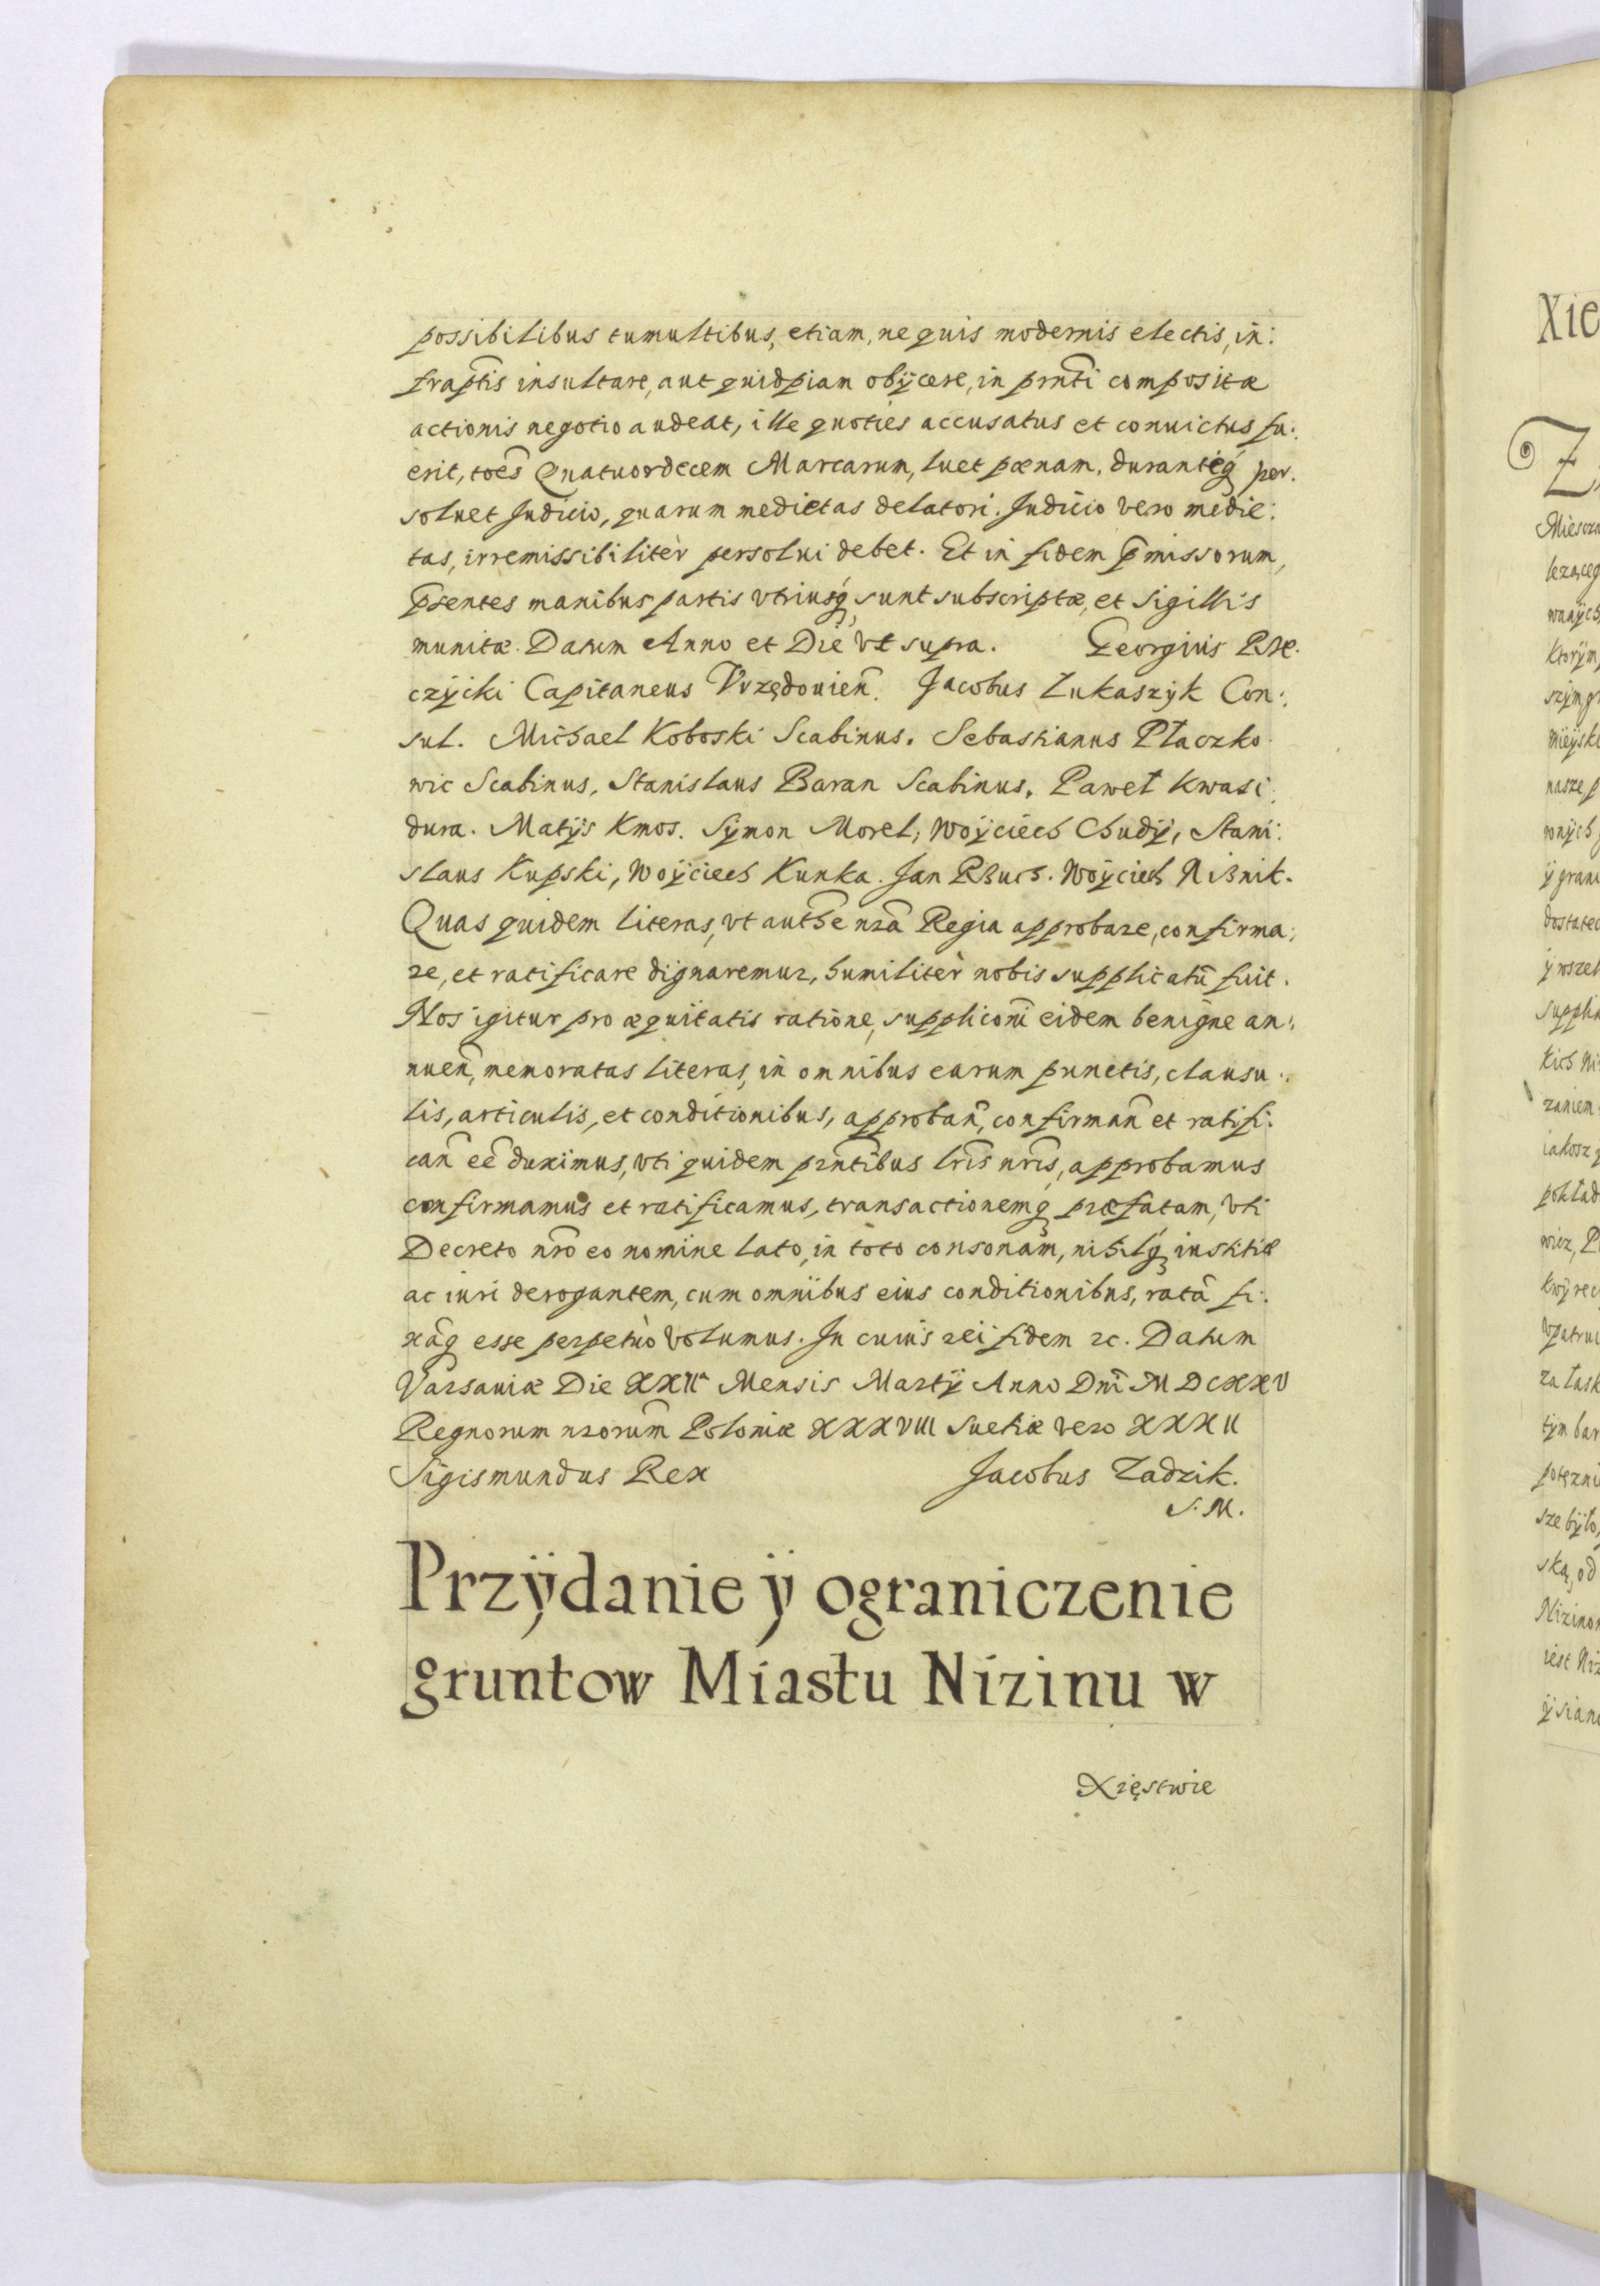 possibilibus tumultibus, etiam, ne quis modernis electis, in:
fraptis insultare, aut quidpiam obÿcere, in prnti compositæ
actionis negotio audeat, ille quoties accusatus et conuictus fu:
erit, toēs Quatuordecem Marcarum, luet pœnam, duranteq́ per:
soluet Judicio, quarum medietas delatori. Judicio vero medie:
tas, irremissibilitèr persolui debet. Et in fidem p̄missorum,
p̄sentes manibus partis vtriusq́, sunt subscriptæ, et Sigillis
munitæ. Datum Anno et Die vt supra. Georgius Rze.
czÿcki Capitaneus Vrzędouien̄. Jacobus Lukaszyk Con:
sul. Michael Koboski Scabinus. Sebastianus Płaczko
wic Scabinus, Stanislaus Baran Scabinus. Paweł Kwasi:
dura. Matÿs Kmos. Sÿmon Morel, Woÿciech Chudÿ, Stani:
slaus Kupski, Woÿciech Kunka. Jan Woÿciech
Quas quidem literas, vt authē nrā Regia approbare, confirma:
re, et ratificare dignaremur, humilitèr nobis supplicatū fuit.
Nos igitur pro æquitatis ratione, suppliconi eidem benigne an:
nuen̄, memoratas literas, in omnibus earum punctis, clausu:
lis, articulis, et conditionibus, approban̄, confirman̄ et ratifi:
can̄ eē duximus, vti quidem prntibus lris nris, approbamus
confirmamus et ratificamus, transactionemq́ præfatam, vti
Decreto nro eo nomine lato, in toto consonam, nihilq́ iustitiæ
ac iuri derogantem, cum omnibus eius conditionibus, ratā fi:
xāq́ esse perpetuò volumus. In cuius rei fidem rc. Datum
Varsauiæ Die XXII Mensis Martÿ Anno Dni MDCXXV
Regnorum nrorum Poloniæ XXXVIII Suetiæ vero XXXII
Sigismundus Rex Jacobus Zadzik.
S. M.
Przÿdanie ÿ ograniczenie
gruntow Miastu Nizinu w
Xięstwie
Xie
Miescza
wanÿch
Ktorÿm
szÿm gr
Mieÿski
nasze p
ÿ grani
dostatec
ÿ wszel
zaniem
iakosz
pokład
za łask
tÿm bar
potęzni
sze bÿło,
ską, od
Nizino
iest Niz